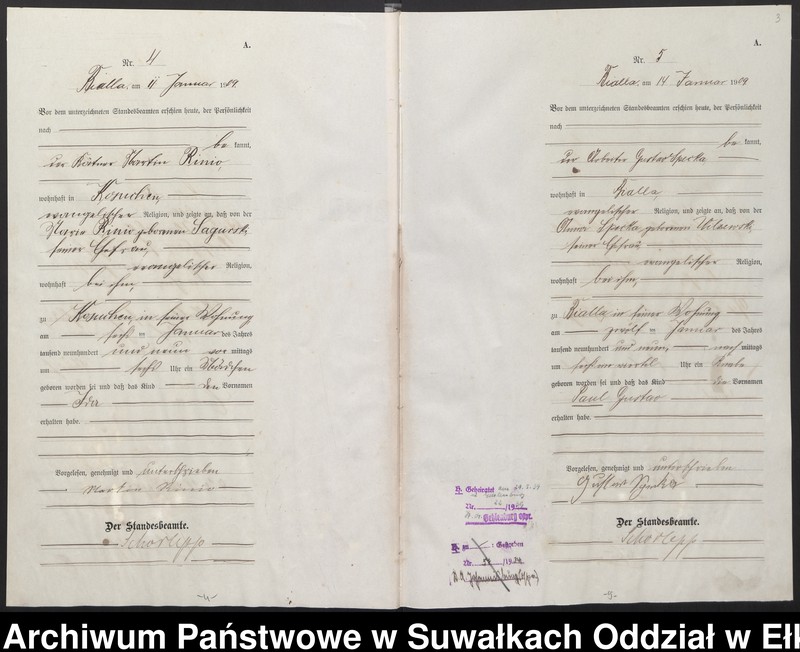 A.
Nr. 4
Bialla, am 11 Januar 1909.
Vor dem unterzeichneten Standesbeamten erschien heute, der Persönlichkeit
nach
be kannt,
der Kätner Martin Rinio,
wohnhaft in Kosuchen,
evangelischer Religion, und zeigte an, daß von der
Marie Rinio geborenen Sagurski,
seiner Ehefrau
evangelischer Religion,
wohnhaft bei ihm,
zu Kosuchen, in seiner Wohnung
am sechs ten Januar des Jahres
tausend neunhundert und neun vor mittags
um sechs Uhr ein Mädchen
geboren worden sei und daß das Kind den Vornamen
Ida
erhalten habe.
Vorgelesen, genehmigt und unterschrieben
Martin Rinio
Der Standesbeamte.
Schorlepp
-4-
3
A.
Nr. 5
Bialla, am 14 Januar 1909
Vor dem unterzeichneten Standesbeamten erschien heute, der Persönlichkeit
nach
be kannt,
der Arbeiter Gustav Specka
wohnhaft in Bialla,
evangelischer Religion, und zeigte an, daß von der
Specka, geborenen
seiner Ehefrau
evangelischer Religion,
wohnhaft bei ihm,
zu Bialla in seiner Wohnung
am zwölf ten Januar des Jahres
tausend neunhundert und neun, nach mittags
um sechs Uhr ein Knabe
geboren worden sei und daß das Kind die Vornamen
Paul Gustav
erhalten habe.
Vorgelesen, genehmigt und unterschrieben
Gustav Specka
Der Standesbeamte.
Schorlepp
H. Geheiratet
Nr.
Gehlenburg Ostpr.
Gestorben
Nr.
-5-
Archiwum Państwowe w Suwałkach Oddział w Ełk